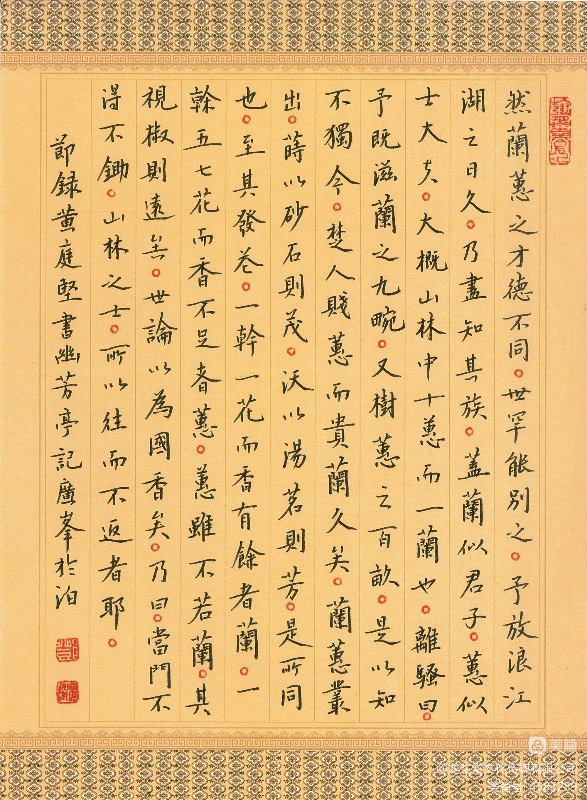 然蘭蕙之才德不同。世罕能別之。予放浪江
湖之日久。乃盡知其族。蓋蘭似君子。蕙似
士大夫。大概山林中十蕙而一蘭也。離騷曰。
予既滋蘭之九畹。又樹蕙之百畝。是以知
不獨今。楚人賤蕙而貴蘭久矣。蘭蕙叢
出。蒔以砂石則茂。沃以湯茗則芳。是所同
也。至其發花。一幹一花而香有餘者蘭。一
幹五七花而香不足者蕙。蕙雖不若蘭。其
視椒則遠矣。世論以為國香矣。乃曰。當門不
得不鋤。山林之士。所以往而不返者耶。
節錄黃庭堅書幽芳亭記廣峯於泊